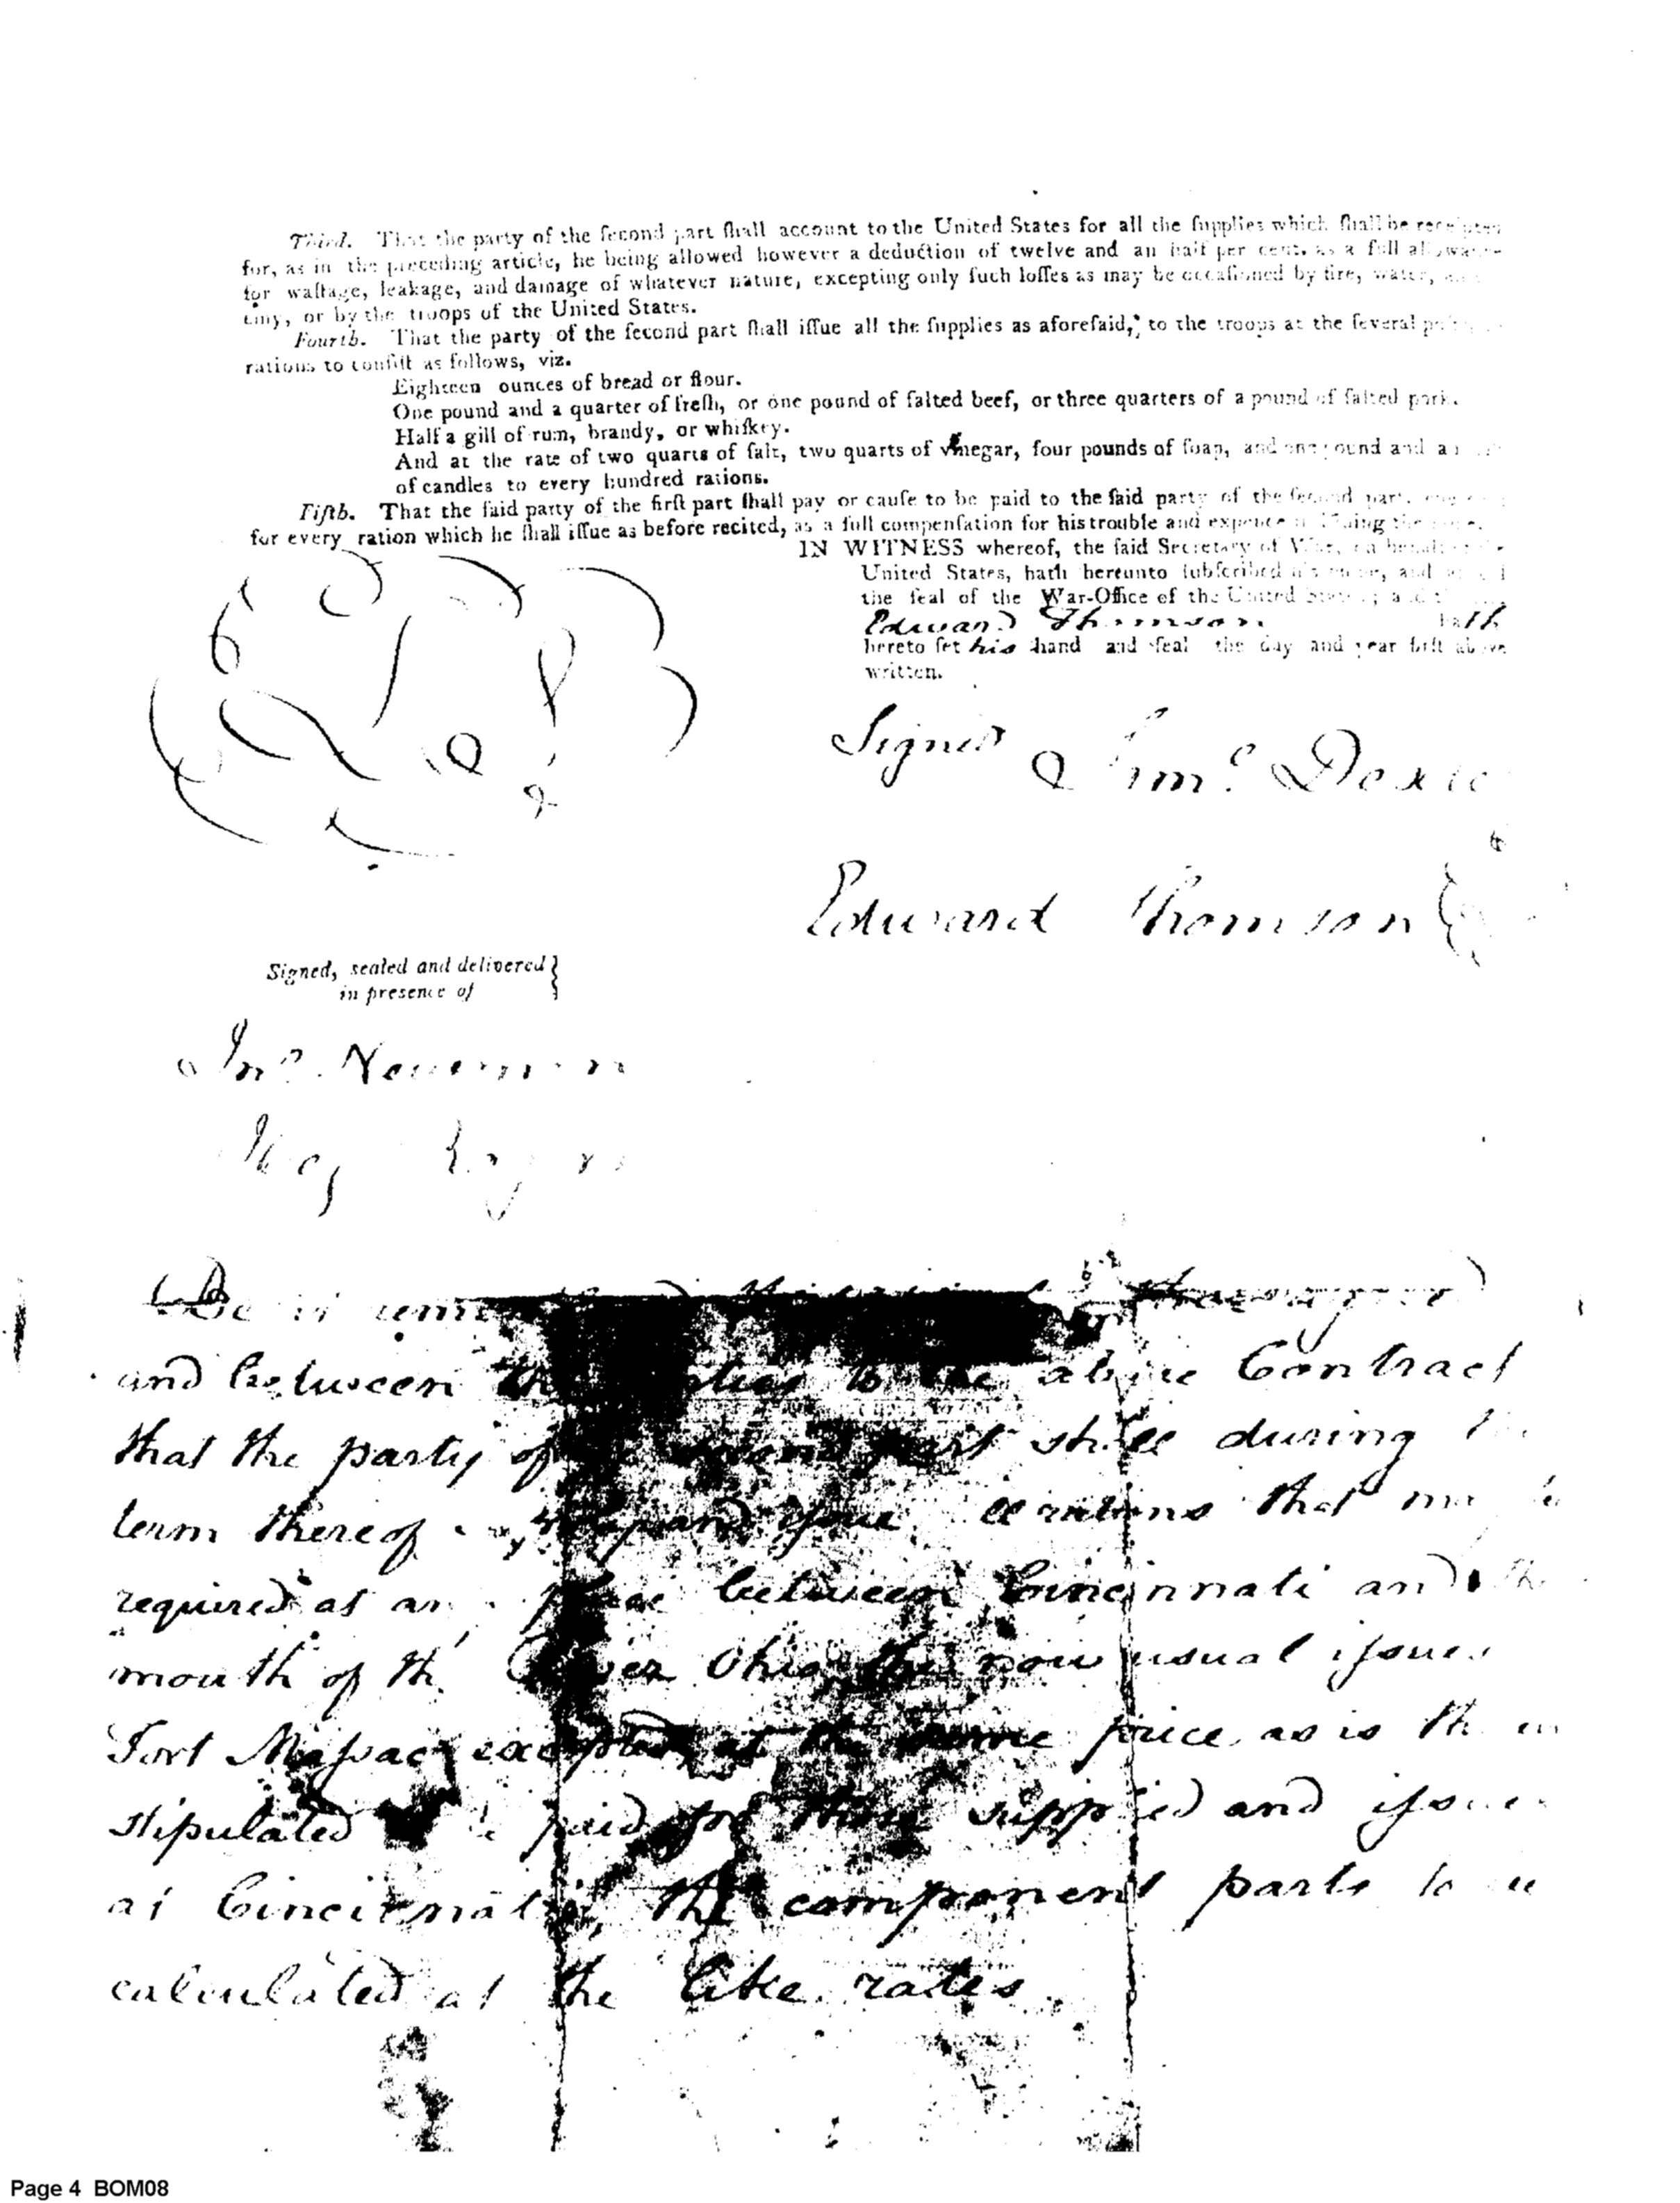 Third. That the party of the ſecond part ſhall account to the United States for all the ſupplies which ſhall be receipted
for, as in the preceding article, he being allowed however a deduction of twelve and an half per cent. as a full allowance
for waſtage, leakage, and damage of whatever nature, excepting only ſuch loſſes as may be occaſioned by fire, water,
emy, or by the troops of the United States.
Fourth. That the party of the ſecond part ſhall iſſue all the ſupplies as aforeſaid, to the troops at the ſeveral
rations to conſiſt as follows, viz.
Eighteen ounces of bread or flour.
One pound and a quarter of freſh, or one pound of ſalted beef, or three quarters of a pound of ſalted pork.
Half a gill of rum, brandy, or whiſkey.
And at the rate of two quarts of ſalt, two quarts of vinegar, four pounds of ſoap, and one pound and a
of candles to every hundred rations.
Fifth. That the ſaid party of the firſt part ſhall pay or cauſe to be paid to the ſaid party of the ſecond part,
for every ration which he ſhall iſſue as before recited, as a full compenſation for his trouble and expence
IN WITNESS whereof, the ſaid Secretary of War, on behalf
United States, hath hereunto ſubſcribed his name, and
the ſeal of the War-Office of the United States; and
Edward Thomson hath
hereto ſet his hand and ſeal the day and year firſt above
written.
Signed Saml. Dexter
Edward Thomson
Signed, sealed and delivered
in presence of
Jno. Newman
Be it
and between the parties to the above Contract
that the party of second part shall during the
term thereof and issue all rations that may
required at any place between Cincinnati and the
mouth of the River Ohio the now usual issues
Fort Massac excepted at the same price as is
stipulated paid for those supplied and
at Cincinnati, the component parts to be
calculated at the like rates
Page 4 BOM08